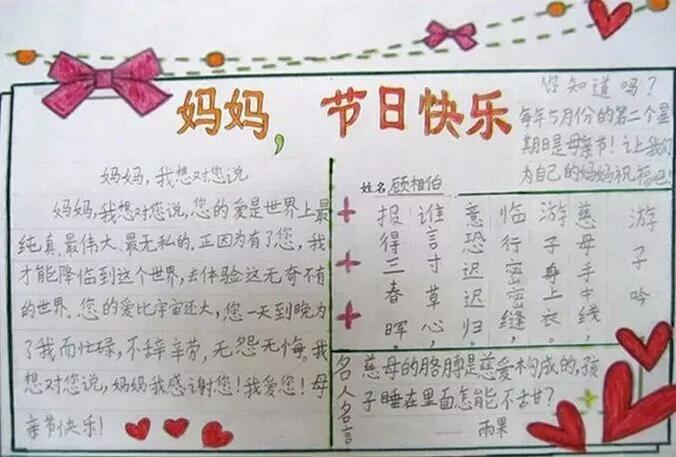 妈妈,节日快乐
你知道吗?
每年5月份的第二个星
期日是母亲节!让我们
为自己的妈妈祝福吧!
妈妈,我想对您说
妈妈,我想对您说,您的爱是世界上最
纯真、最伟大、最无私的。正因为有了您,我
才能降临到这个世界,去体验这无奇不有
的世界。您的爱比宇宙还大,您一天到晚为
了我而忙碌,不辞辛劳,无怨无悔。我
想对您说,妈妈我感谢您!我爱您!母
亲节快乐!
姓名 顾相伯
游子吟
慈母手中线,
游子身上衣。
临行密密缝,
意恐迟迟归。
谁言寸草心,
报得三春晖
名人名言
慈母的胳膊是慈爱构成的,孩
子睡在里面怎能不甜?
雨果